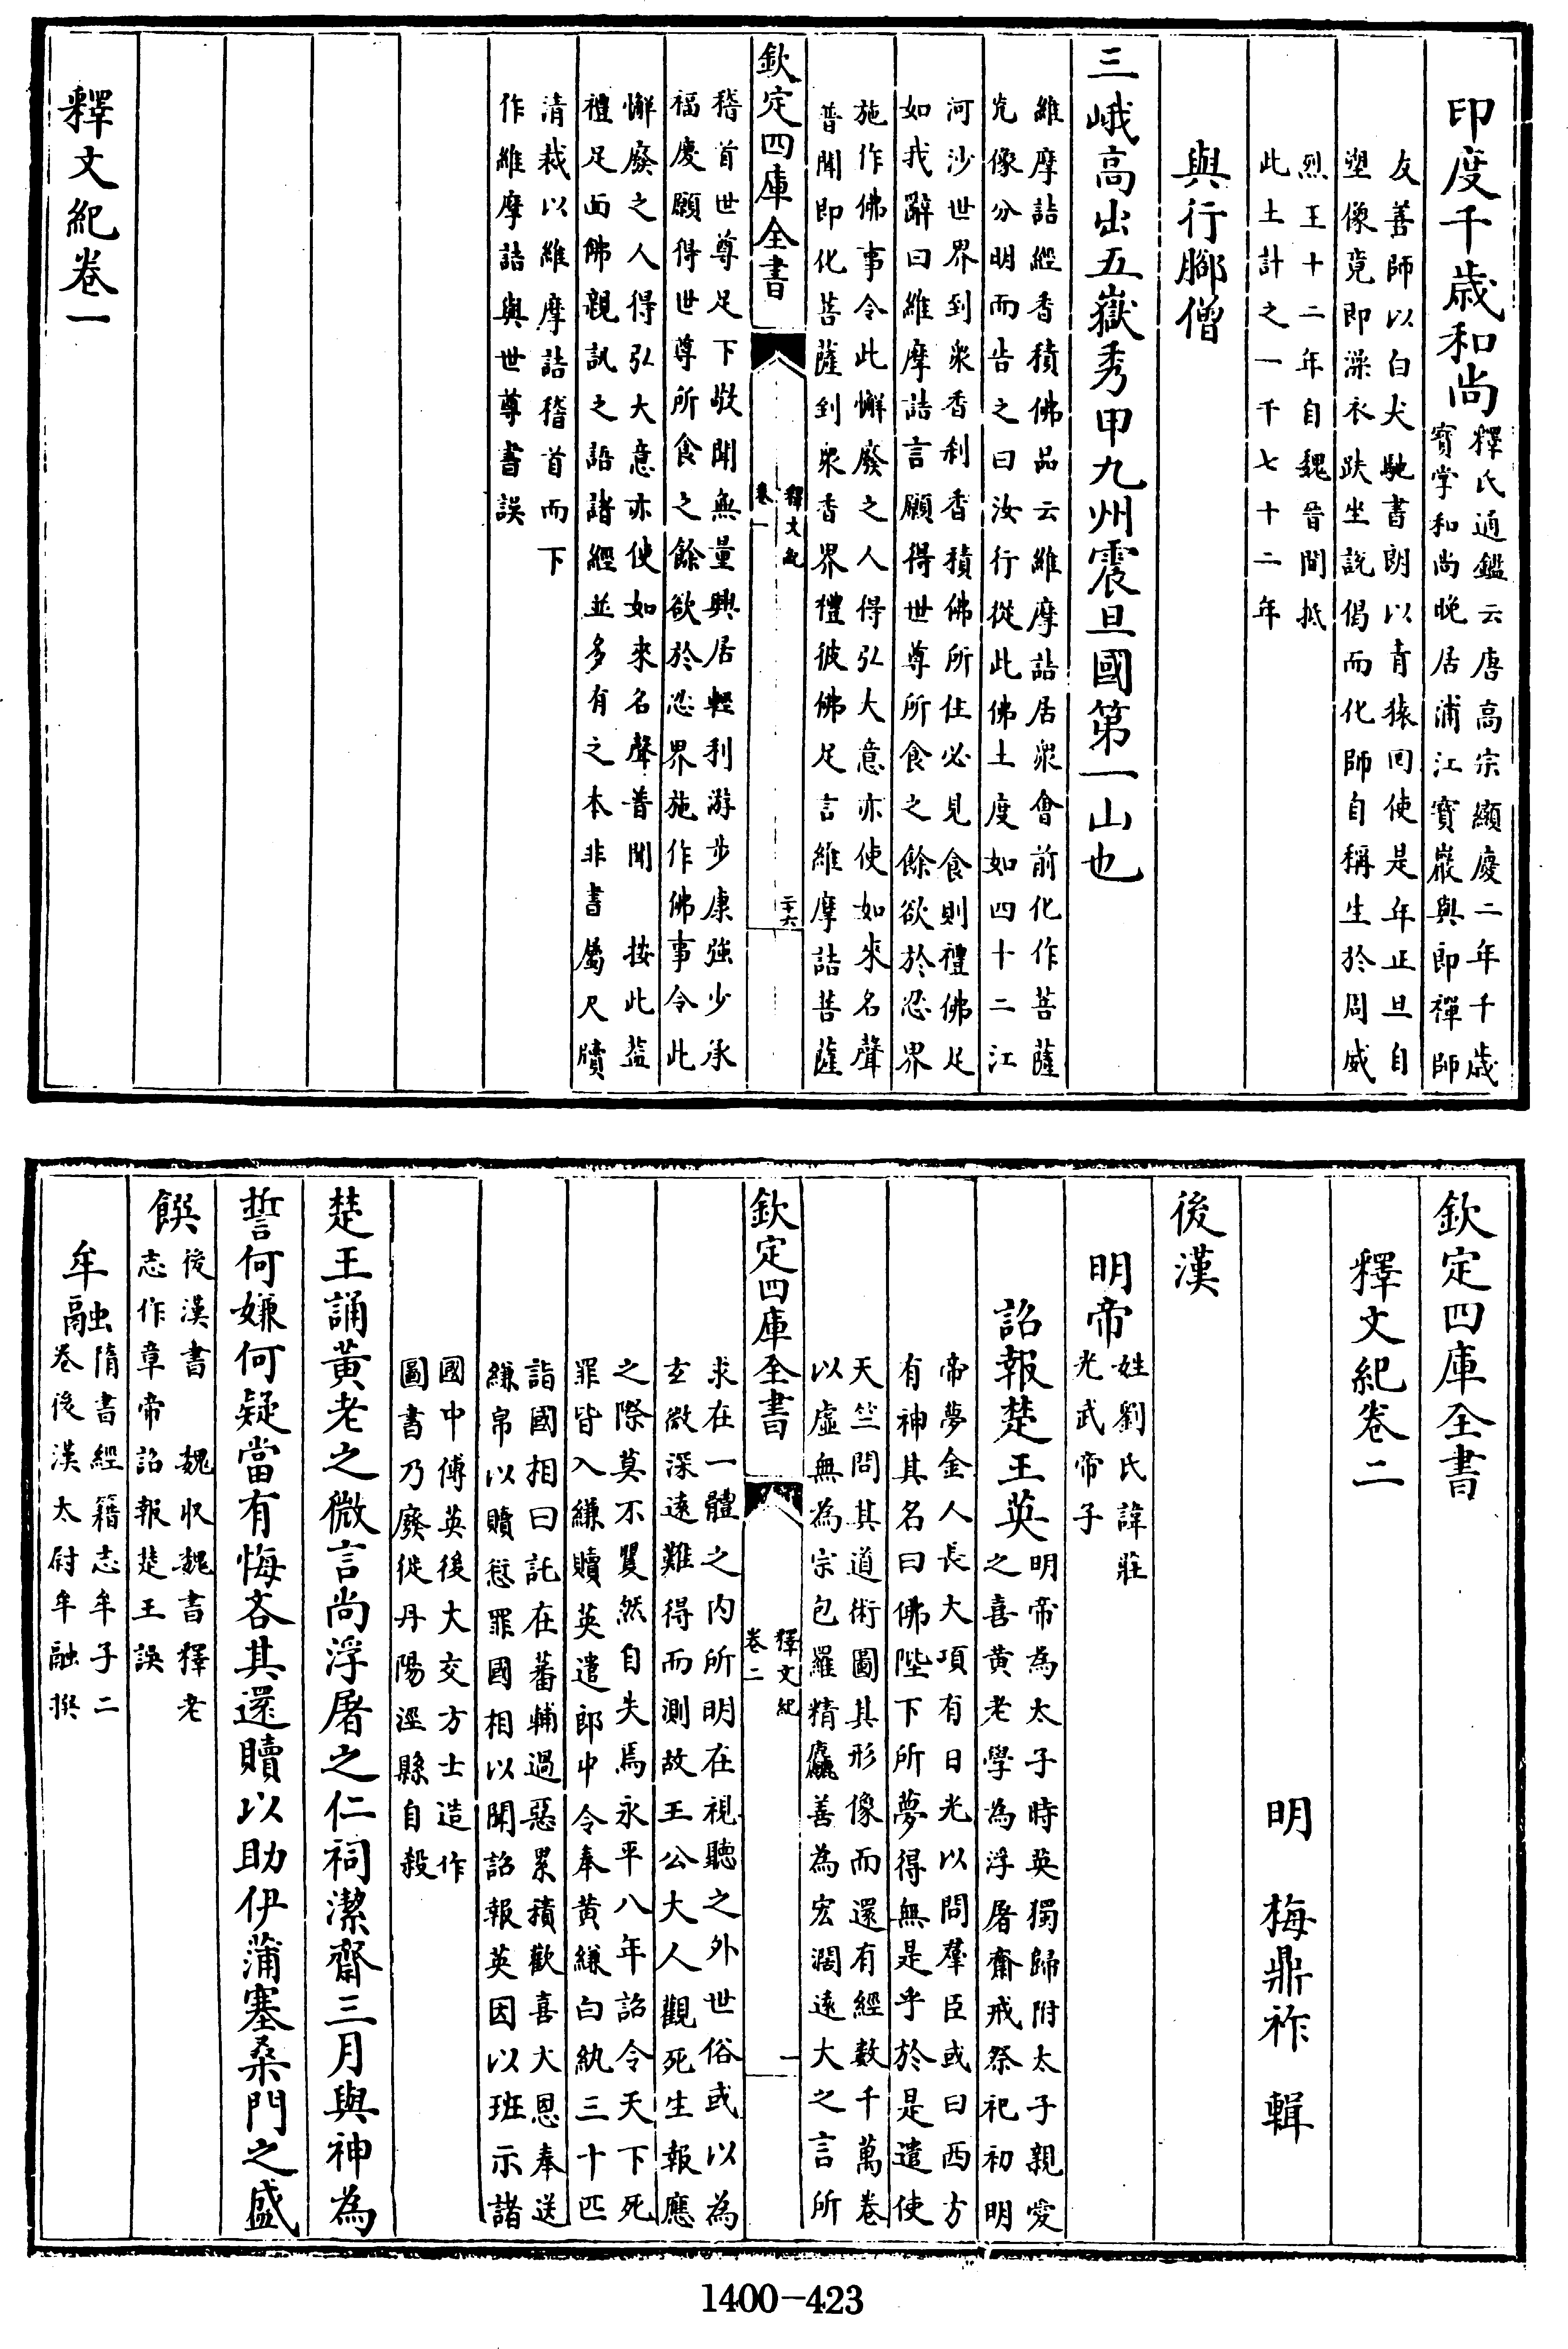 印度千歲和尚釋氏通鑑云唐高宗顯慶二年千歲
寶掌和尚晚居浦江寶巖與即禪師
友善師以白犬馳書朗以青猿回使是年正旦自
塑像竟即澡衣趺坐說偈而化師自稱生於周威
烈王十二年自魏晉間抵
此土計之一千七十二年
與行腳僧
三峨高出五嶽秀甲九州震旦國第一山也
維摩詰經香積佛品云維摩詰居衆會前化作菩薩
光像分明而告之曰汝行從此佛土度如四十二江
河沙世界到衆香刹香積佛所住必見食則禮佛足
如我辭曰維摩詰言願得世尊所食之餘欲於忍界
施作佛事令此懈廢之人得弘大意亦使如來名聲
普聞即化菩薩到衆香界禮彼佛足言維摩詰菩薩
欽定四庫全書
釋文紀
卷一
二十六
稽首世尊足下敬聞無量興居輕利游步康強少承
福慶願得世尊所食之餘欲於忍界施作佛事令此
懈廢之人得弘大意亦使如來名聲普聞 按此葢
禮足面佛親訊之語諸經並多有之本非書屬尺牘
清裁以維摩詰稽首而下
作維摩詰與世尊書誤
釋文紀卷一
欽定四庫全書
釋文紀卷二
明 梅鼎祚 輯
後漢
明帝姓劉氏諱莊
光武帝子
詔報楚王英明帝為太子時英獨歸附太子親愛
之喜黃老學為浮屠齋戒祭祀初明
帝夢金人長大項有日光以問羣臣或曰西方
有神其名曰佛陛下所夢得無是乎於是遣使
天竺問其道術圖其形像而還有經數千萬卷
以虛無為宗包羅精麤善為宏濶遠大之言所
欽定四庫全書
釋文紀
卷二
一
求在一體之内所明在視聽之外世俗或以為
玄微深遠難得而測故王公大人觀死生報應
之際莫不矍然自失焉永平八年詔令天下死
罪皆入縑贖英遣郎中令奉黃縑白紈三十匹
詣國相曰託在蕃輔過惡累積歡喜大恩奉送
縑帛以贖愆罪國相以聞詔報英因以班示諸
國中傅英後大交方士造作
圖書乃廢徙丹陽涇縣自殺
楚王誦黃老之微言尚浮屠之仁祠潔齋三月與神為
誓何嫌何疑當有悔吝其還贖以助伊蒲塞桑門之盛
饌後漢書 魏収魏書釋老
志作章帝詔報楚王誤
牟融隋書經籍志牟子二
卷後漢太尉牟融撰
1400-423